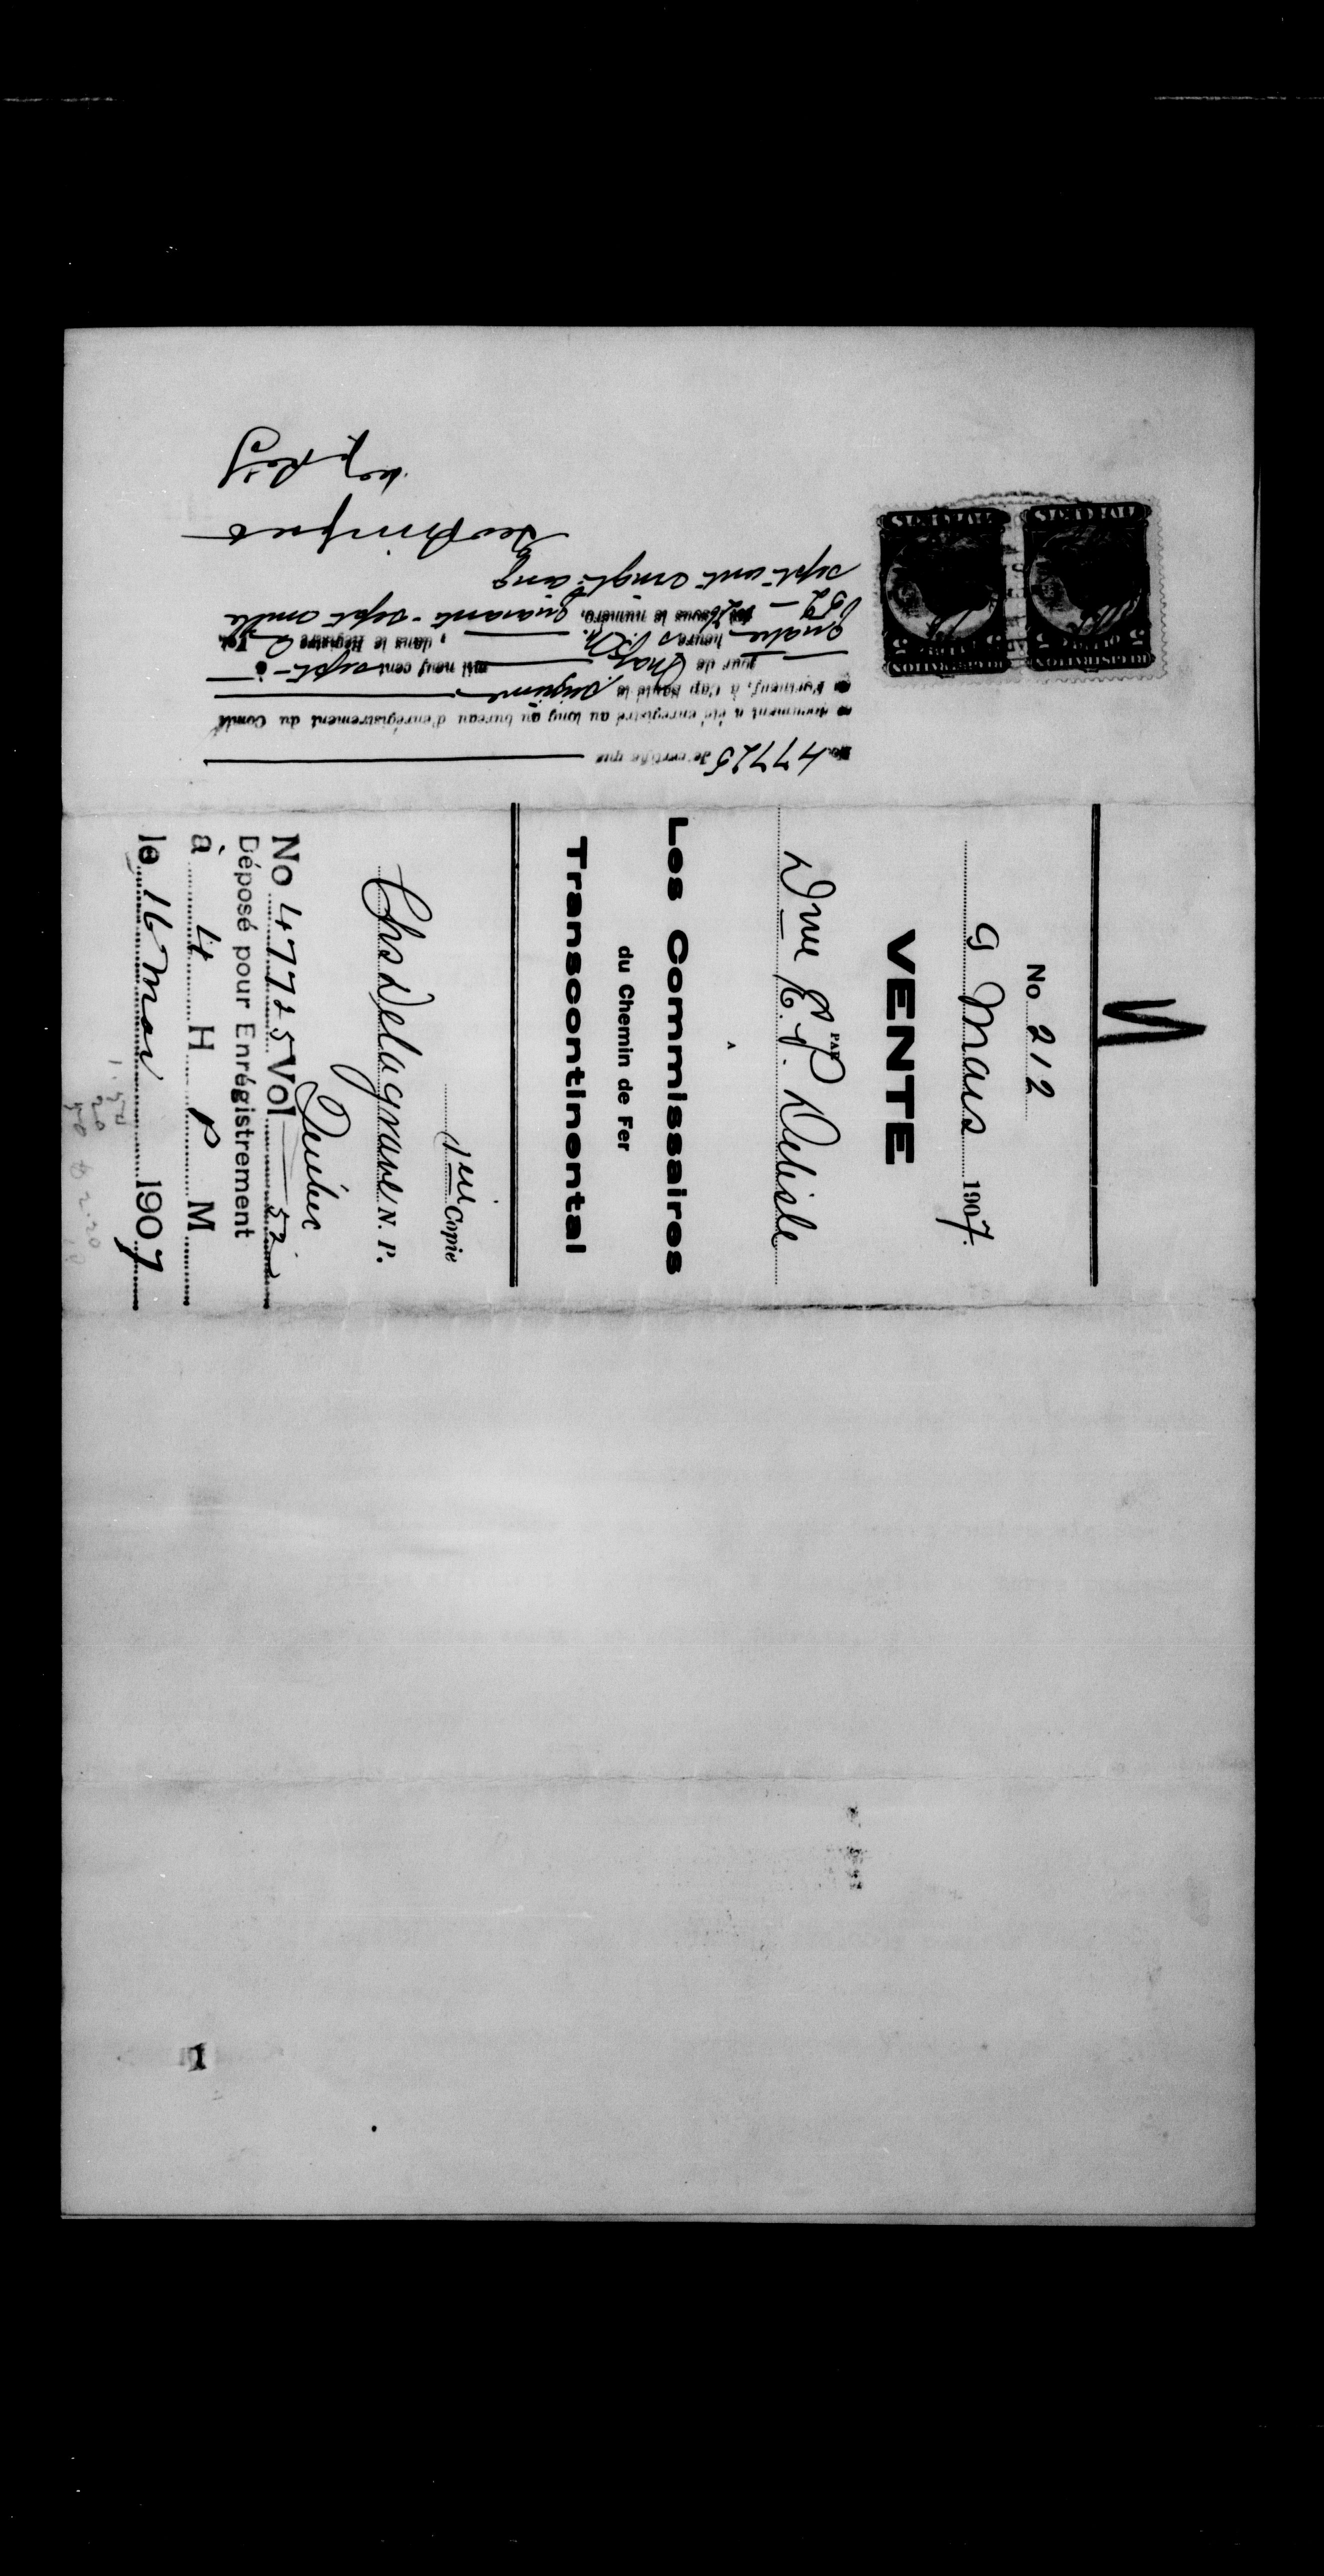 No 212
9 Mars 1907.
VENTE
PAR
Dme E. P. Delisle
A
Les Commissaires
du Chemin de Fer
Transcontinental
1ère Copie
Chs Delagrave N. P.
Québec
No 47725 Vol 52
Déposé pour Enrégistrement
à 4 H P M
le 16 Mai 1907
No. 47725 Je certifie que
ce document a été enregistré au long au bureau d'enregistrement du Comté
de Portneuf, à Cap Santé le seizième
jour de Mai mil neuf cent sept à
quatre heures P.M. , dans le Régistre B Vol.
52 sous le numéro. quarante-sept mille
sept cent vingt cinq
Dep Reg